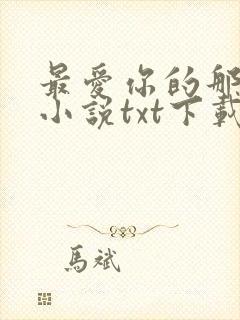 最愛你的那
小說txt下載
馬斌